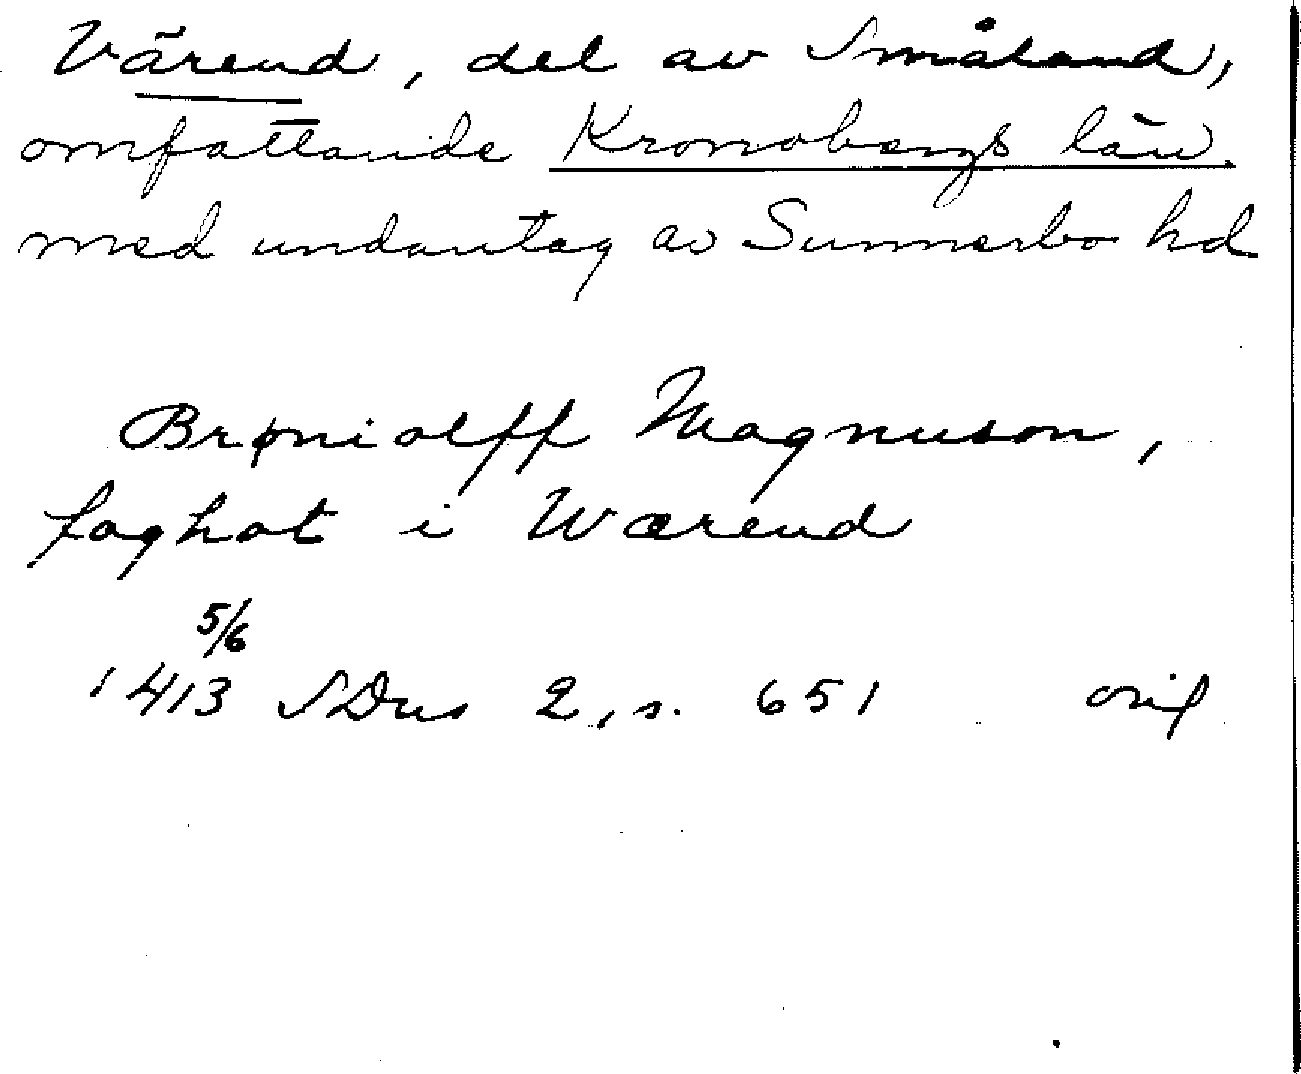 Värend, del av Småland,
omfattande Kronobergs län
med undantag av Sunnerbo hd
Brøniolff Magnuson,
foghot i Wærend
5/6
1413 SDns 2, s. 651 orig